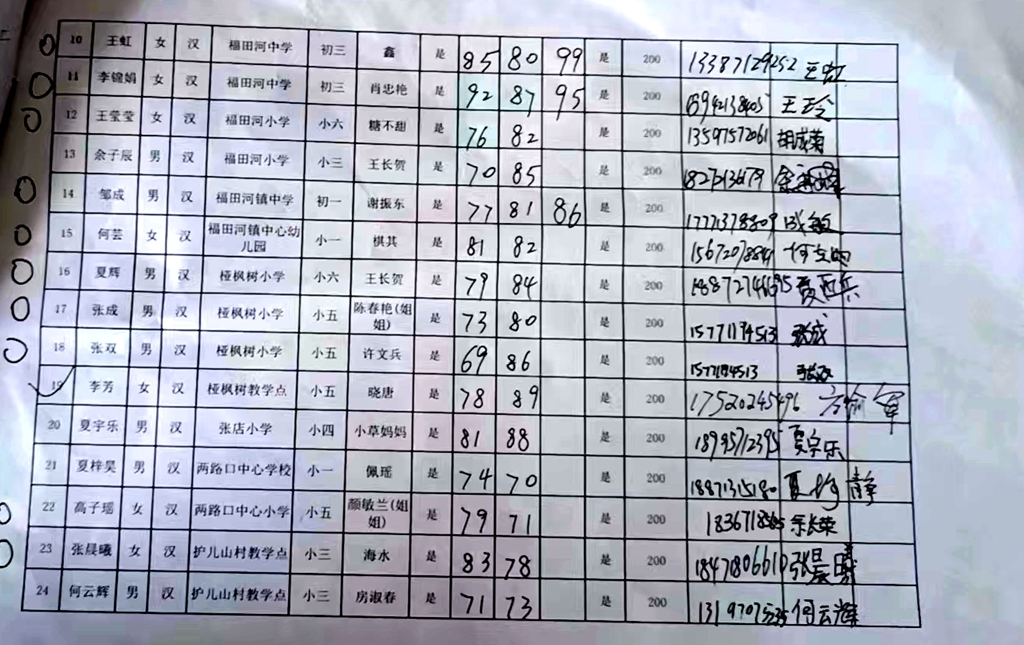 10 王虹 女 汉 福田河中学 初三 鑫 是 85 80 99 是 200 13387129252 王虹
11 李锦娟 女 汉 福田河中学 初三 肖忠艳 是 92 87 95 是 200 王玉玲
12 王莹莹 女 汉 福田河小学 小六 糖不甜 是 76 82 是 200 13597572061 胡成菊
13 余子辰 男 汉 福田河小学 小三 王长贺 是 70 85 是 200
14 邹成 男 汉 福田河镇中学 初一 谢振东 是 77 81 86 是 200 17771378809
15 何芸 女 汉 福田河镇中心幼儿园 小一 棋其 是 81 82 是 200
16 夏辉 男 汉 桠枫树小学 小六 王长贺 是 79 84 是 200
17 张成 男 汉 桠枫树小学 小五 陈春艳(姐姐) 是 73 80 是 200 15771174513 张成
18 张双 男 汉 桠枫树小学 小五 许文兵 是 69 86 是 200 张双
19 李芳 女 汉 桠枫树教学点 小五 晓唐 是 78 89 是 200 17520245496
20 夏宇乐 男 汉 张店小学 小四 小草妈妈 是 81 88 是 200 18995712395 夏宇乐
21 夏梓昊 男 汉 两路口中心学校 小一 佩瑶 是 74 70 是 200 18871315180
22 高子瑶 女 汉 两路口中心小学 小五 颜敏兰(姐姐) 是 79 71 是 200
23 张晨曦 女 汉 护儿山村教学点 小三 海水 是 83 78 是 200 18478066610 张晨曦
24 何云辉 男 汉 护儿山村教学点 小三 房淑春 是 71 73 是 200 何云辉